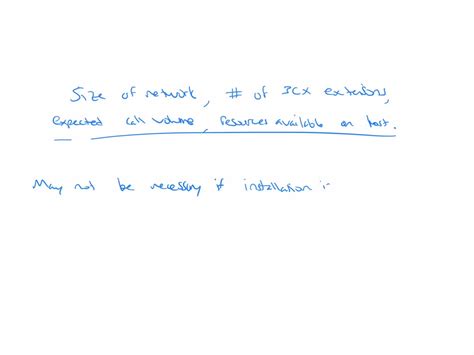 Size of network, # of 3CX extensions,
expected call volume, resources available on host.
May not be necessary if installation i